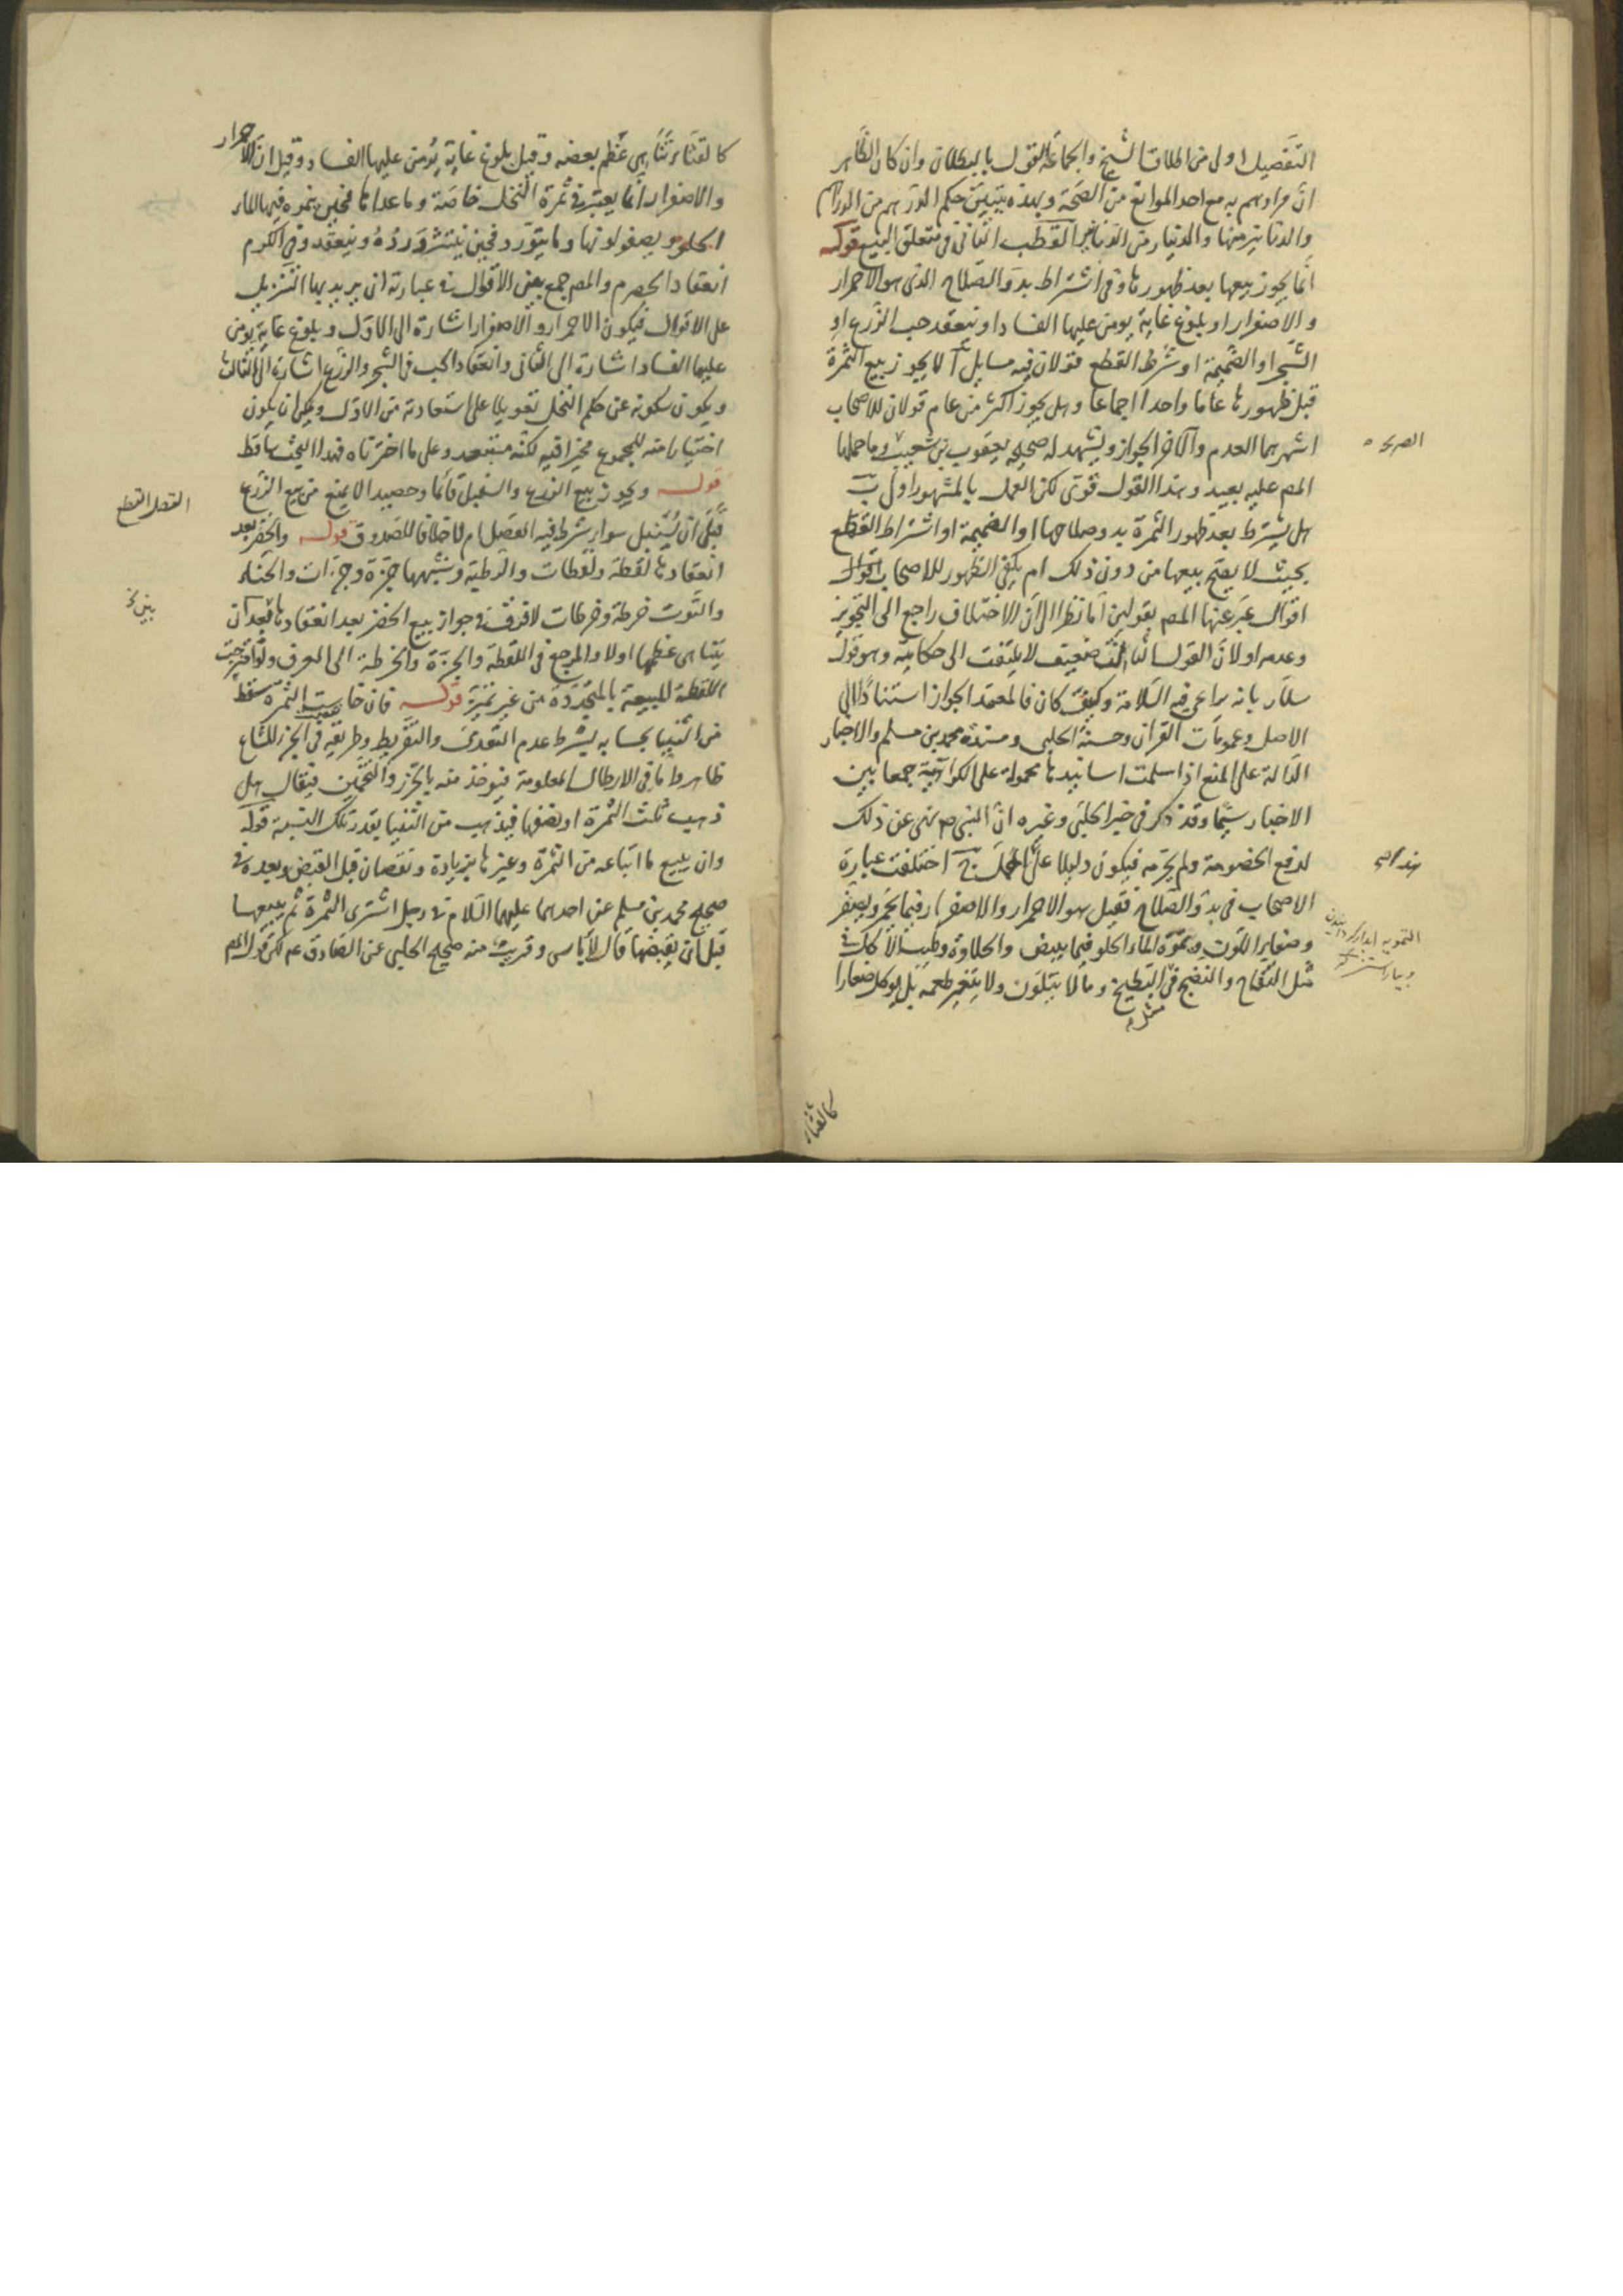 التفصيل اولى من اطلاق الشيخ والجماعة القول بالبطلان وان كان الظاهر
ان مرادهم به مع احد الموانع من الصحة وبهذه يتبين حكم الدرهم من الدراهم
والدنانير منها والدينار من الدنانير القطب الثانى فى متعلق البيع قوله
انما يجوز بيعها بعد ظهورها وفى اشتراط بدو الصلاح الذى هو الاحمرار
والاصفرار او بلوغ غاية يومن عليها الفساد او ينعقد حب الزرع او
الشجر او الضميمة او شرط القطع قولان فيه مسايل آ لا يجوز بيع الثمرة
قبل ظهورها عاما واحدا اجماعا وهل يجوز اكثر من عام قولان للاصحاب
اشهرهما العدم والآخر الجواز ويشهد له صحيحه يعقوب بن شعيب وما حملها
المص عليه بعيد وهذا القول قوى لكن العمل بالمشهور اولى ب
هل يشترط بعد ظهور الثمرة بدو صلاحها او الضميمة او اشتراط القطع
بحيث لا يصح بيعها من دون ذلك ام يكفى الظهور للاصحاب اقوال
اقوال عبر عنها المص بقولين اما نظرا الى ان الاختلاف راجع الى التجويز
وعدمه او لان القول الثالث ضعيف لا يلتفت الى حكايته وهو قول
سلار بانه يراعى فيه السلامة وكيف كان فالمعتمد الجواز استنادا الى
الاصل وعمومات القرآن وحسنة الحلبى ومسندة محمد بن مسلم والاخبار
الدالة على المنع اذا سلمت اسانيدها محمولة على الكراهية جمعا بين
الاخبار سيما وقد ذكر فى خبر الحلبى وغيره ان النبى ص نهى عن ذلك
لدفع الخصومة ولم يحرمه فيكون دليلا على الحمل ج اختلفت عبارة
الاصحاب فى بدو الصلاح فقيل هو الاحمرار والاصفرار فيما يحمر ويصفر
وصفاير اللون وتموه الماء الحلو فيما يبيض والحلاوة وطيب الاكل فى
مثل التفاح والنضج فى البطيخ وما لا يتلون ولا يتغير طعمه بل يوكل صغارا
مثله
كالقثاء
كالقثاء تناهى عظم بعضه وقيل بلوغ غاية يؤمن عليها الفساد وقيل ان الاحمرار
والاصفرار انما يعتبر فى ثمرة النخل خاصة وما عداها فحين يتموه فيها الماء
الحلو ويصفو لونها وما يتورد فحين ينتثر ورده وينعقد وفى الكرم
انعقاد الحصرم والمص جمع بين الاقوال فى عبارته اى يريد بها التنزيل
على الاقوال فيكون الاحمرار والاصفرار اشارة الى الاول وبلوغ غاية يومن
عليها الفساد اشارة الى الثانى وانعقاد الحب فى الشجر والزرع اشارة الى الثالث
ويكون سكوته عن حكم النخل تعويلا على استفادته من الاول ويمكن ان يكون
اختيارا منه للمجموع مخيرا فيه لكنه مستبعد وعلى ما اخترناه فهذا البحث ساقط
قوله ويجوز بيع الزرع والسنبل قائما وحصيدا لا يمنع من بيع الزرع
قبل ان يسنبل سواء شرط فيه القصل ام لا خلافا للصدوق قوله والخضر بعد
انعقادها لقطة ولقطات والرطبة وشبهها جزة وجزات والحناء
والتوت خرطة وخرطات لا فرق فى جواز بيع الخضر بعد انعقادها بعد ان
يتناهى عظمها اولا والمرجع فى اللقطة والجزة والخرطة الى العرف ولو امتزجت
اللقطة المبيعة بالمتجددة من غير تميز قوله فان خاست الثمرة سقط
من الثنيا بحسابه بشرط عدم التعدى والتفريط وطريقه فى الجزء المشاع
ظاهر واما فى الارطال المعلومة فيؤخذ منه بالحزر والتخمين فيقال هل
ذهب ثلث الثمرة او نصفها فيذهب من الثنيا بقدر تلك النسبة قوله
وان يبيع ما ابتاعه من الثمرة وغيرها بزيادة ونقصان قبل القبض وبعده فى
صحيح محمد بن مسلم عن احدهما عليهما السلام فى رجل اشترى الثمرة ثم يبيعها
قبل ان يقبضها قال لا باس وقريب منه صحيح الحلبى عن الصادق عم لكن قول المص
القصل القطع